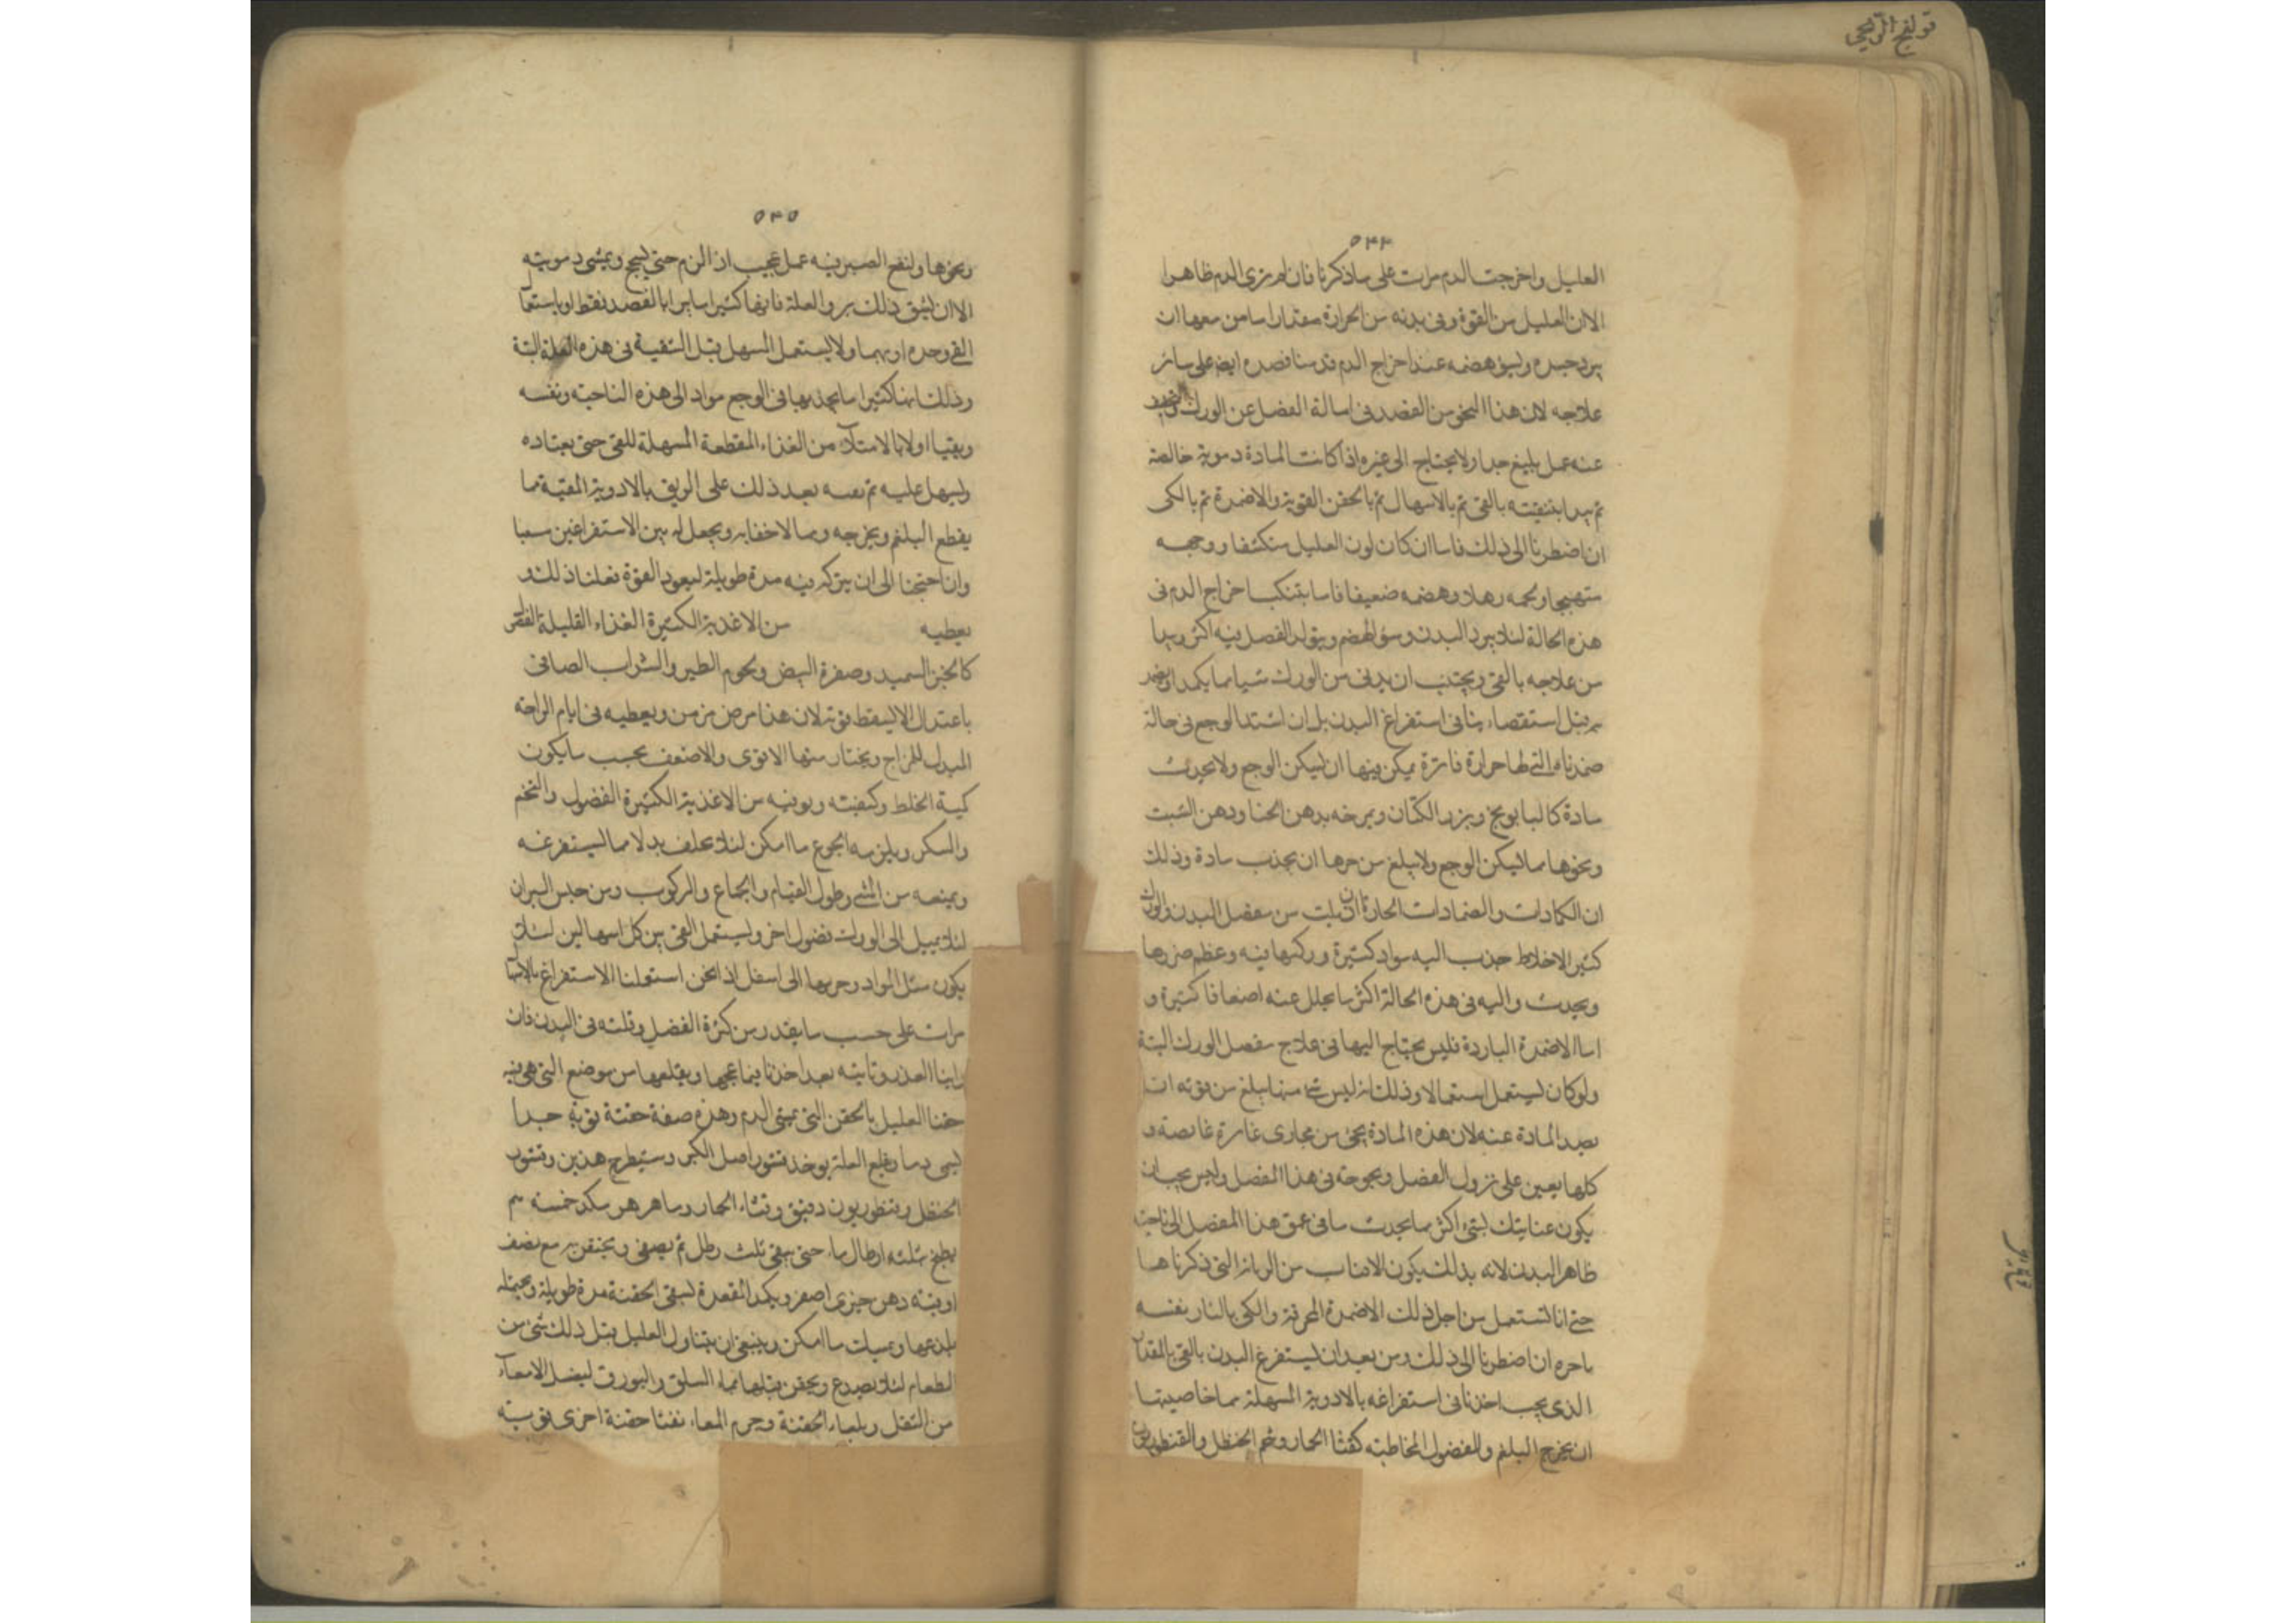 ٥٣٤
العليل واخرجت الدم مرات على ما ذكرنا فان لم نرى الدم ظاهرا
الا ان العليل من القوة وفى بدنه من الحرارة مقدارا ما من معها ان
يبرد جسده ويسؤ هضمه عند اخراج الدم قدمنا فصده ايضا على سائر
علاجه لان هذا النحو من الفصد فى اسالة الفضل عن الورك
عنه عمل بليغ جدا ولا يحتاج الى غيره اذا كانت المادة دموية خالصة
ثم يبدا بتنقيته بالقى ثم بالاسهال ثم بالحقن القوية والاضمدة ثم بالكى
ان اضطرنا الى ذلك فاما ان كان لون العليل منكشفا ووجهه
متهيجا ولحمه رهلا وهضمه ضعيفا فاما بتنكب اخراج الدم فى
هذه الحالة لئلا يبرد البدن وسؤ الهضم ويتولد الفضل فيه اكثر ويبدا
من علاجه بالقى ويجتنب ان يدنى من الورك شيا مما يكمد
به قبل استقصاء بنا فى استفراغ البدن بل ان اشتد الوجع فى حالة
ضمدناه التى لها حرارة فاترة يمكن بينها ان يسكن الوجع ولا يحدث
مادة كالبابونج وبزر الكتان ويمرخه بدهن الحنا ودهن الشبت
ونحوها مما يسكن الوجع ولا يبلغ من حرها ان يجذب مادة وذلك
ان الكمادات والضمادات الحارة ان بليت من مفصل البدن والورك
كثير الاخلاط جذب اليه مواد كثيرة وركبها فيه وعظم ضررها
ويحدث واليه فى هذه الحالة اكثر ما يحلل عنه اضعافا كثيرة و
اما الاضمدة الباردة فليس يحتاج اليها فى علاج مفصل الورك البتة
ولو كان يستعمل استعمالا وذلك انه ليس شئ منها يبلغ من قوته ان
يصد المادة عنه لان هذه المادة يجئ من مجارى غائرة غايصة و
كلها يعين على نزول الفضل ولحوجه فى هذا المفصل وليس يجب ان
يكون عنايتك بشئ اكثر مما يحدث ما فى عمق هذا المفصل الى ناحية
ظاهر البدن لانه بذلك يكون الاذناب من الزمانة التى ذكرناها
حتى انا لنستعمل من اجل ذلك الاضمدة المحرقة والكى بالنار نفسه
باخره ان اضطرنا الى ذلك ومن بعد ان يستفرغ البدن بالقى بالمقدار
الذى يجب اخذنا فى استفراغه بالادوية المسهلة مما خاصيتها
ان يخرج البلغم والفضول المخاطية كقثا الحمار وشحم الحنظل والقنطوريون
٥٣٥
ونحوها ولنفع الصبر فيه عمل عجيب ان الزم حتى يسحج ويمشى دموية
الا ان يشق ذلك برؤ العلة فانها كثيرا ما يبرا بالفصد فقط او باستعمال
القى وحده او بهما ولا يستعمل المسهل قبل التنقية فى هذه العلة البتة
وذلك انها كثيرا ما يجذبها فى الوجع مواد الى هذه الناحية ونفسه
ويقيا اولا بالامتلاء من الغذاء المقطعة المسهلة للقى حتى يعتاده
ويسهل عليه ثم نفسه بعد ذلك على الريق بالادوية المقيئة مما
يقطع البلغم ويخرجه ومما لا خفا به ويجعل له بين الاستفراغين سبعا
وان احتجنا الى ان يتركه فيه مدة طويلة ليعود القوة فعلنا ذلك و
يعطيه من الاغذية الكثيرة الغذاء القليلة الفضل
كالخبز السميد وصفرة البيض ولحوم الطير والشراب الصافى
باعتدال الا ليسقط قوته لان هذا مرض مزمن ويعطيه فى ايام الراحة
المبدل للمزاج ويختار منها الاقوى والاضعف بحسب ما يكون
كمية الخلط وكيفيته ويوقيه من الاغذية الكثيرة الفضول والتخم
والسكر ويلزمه الجوع ما امكن لئلا يخلف بدلا مما يستفرغه
ويمنعه من المشى وطول القيام والجماع والركوب ومن حبس البراز
لئلا يميل الى الورك فضول اخر ويستعمل القى بين كل اسهالين لئلا
يكون مثل المواد وجريها الى اسفل اذا نحن استعملنا الاستفراغ بالاسهال
مرات على حسب ما يقدر من كثرة الفضل وقلته فى البدن فان
راينا العذر وتاتيه بعد اخذنا فيما عجها ويقلعها من موضع التى هى فيه
حقنا العليل بالحقن التى يمشى الدم وهذه صفة حقنة قوية جدا
يمشى دما ويقلع العلة يوخذ قشور اصل الكبر وسيطرج هندى وقشور
الحنظل وقنطوريون دقيق وقثاء الحمار وماهى زهره سكد خمسة م
يطبخ بثلثه ارطال ماء حتى يبقى ثلث رطل ثم يصفى ويحتقن به مع نصف
اوقية دهن خيرى اصفر ويكمد المقعدة لتبقى الحقنة مدة طويلة ويحتمله
بلدغها ويمسك ما امكن وينبغى ان يتناول العليل قبل ذلك شئ من
الطعام لئلا يصدع ويحقن قبلها بماء السلق والبورق ليغسل الامعاء
من الثفل ويلقاء الحقنة وجرم المعاء نفشا حقنة اخرى قوية